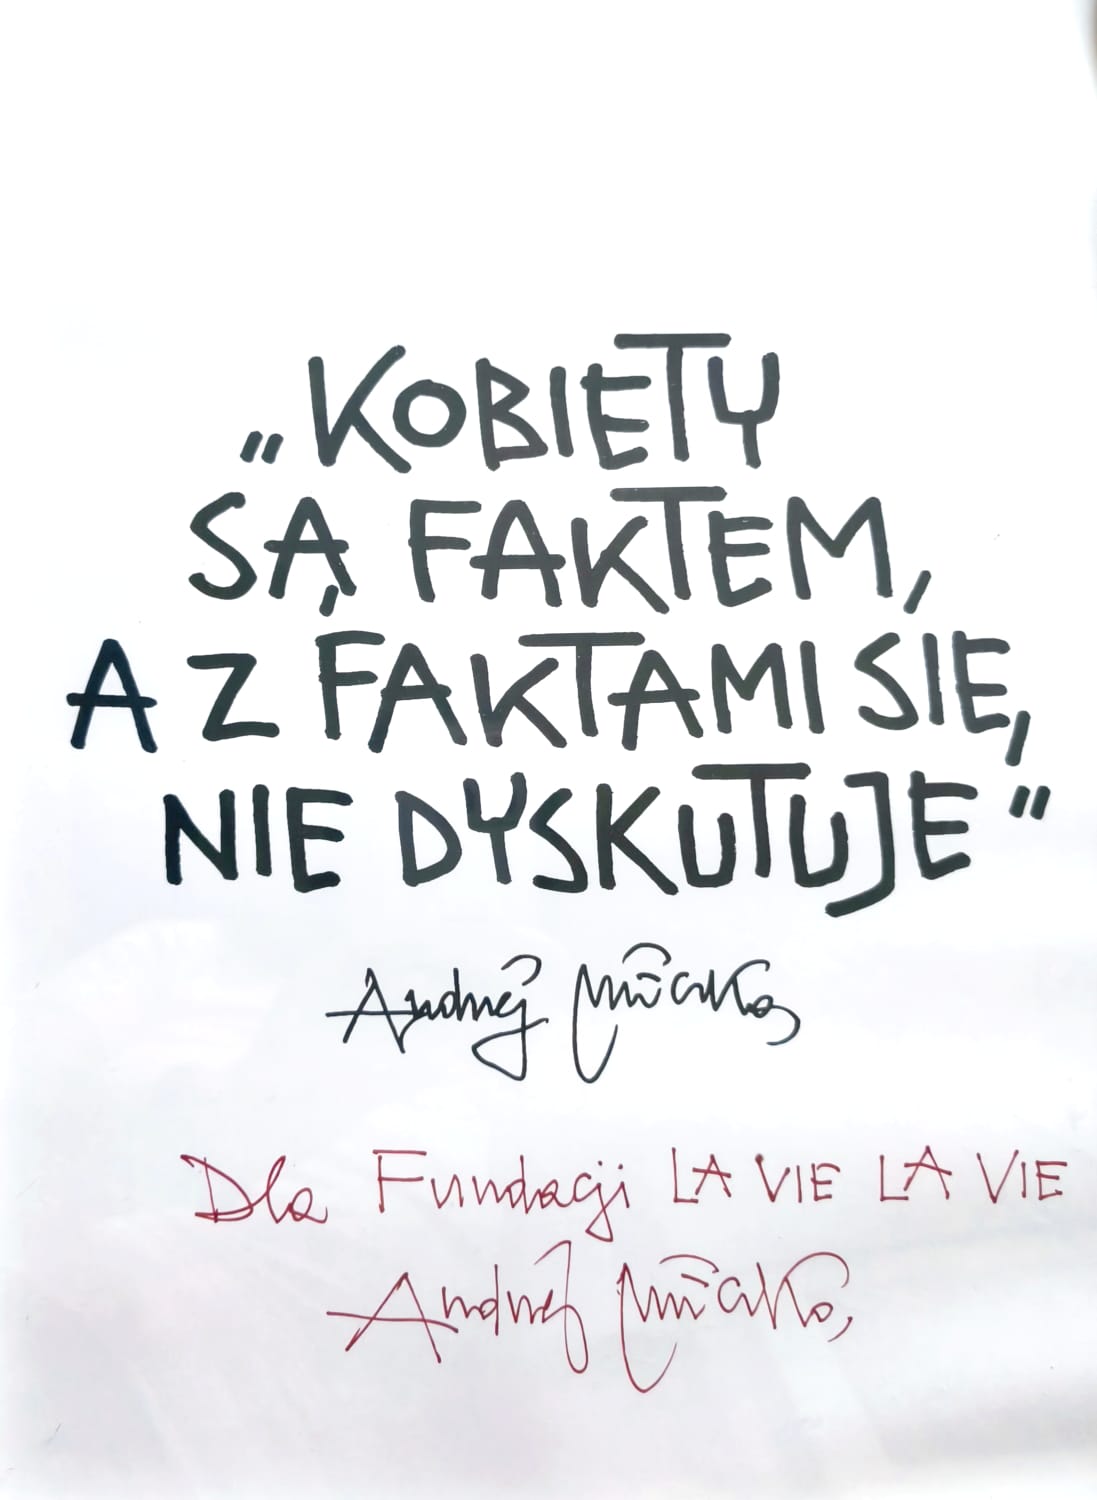 „KOBIETY
SĄ FAKTEM,
A Z FAKTAMI SIĘ
NIE DYSKUTUJE”
Andrzej
Dla Fundacji LA VIE LA VIE
Andrzej